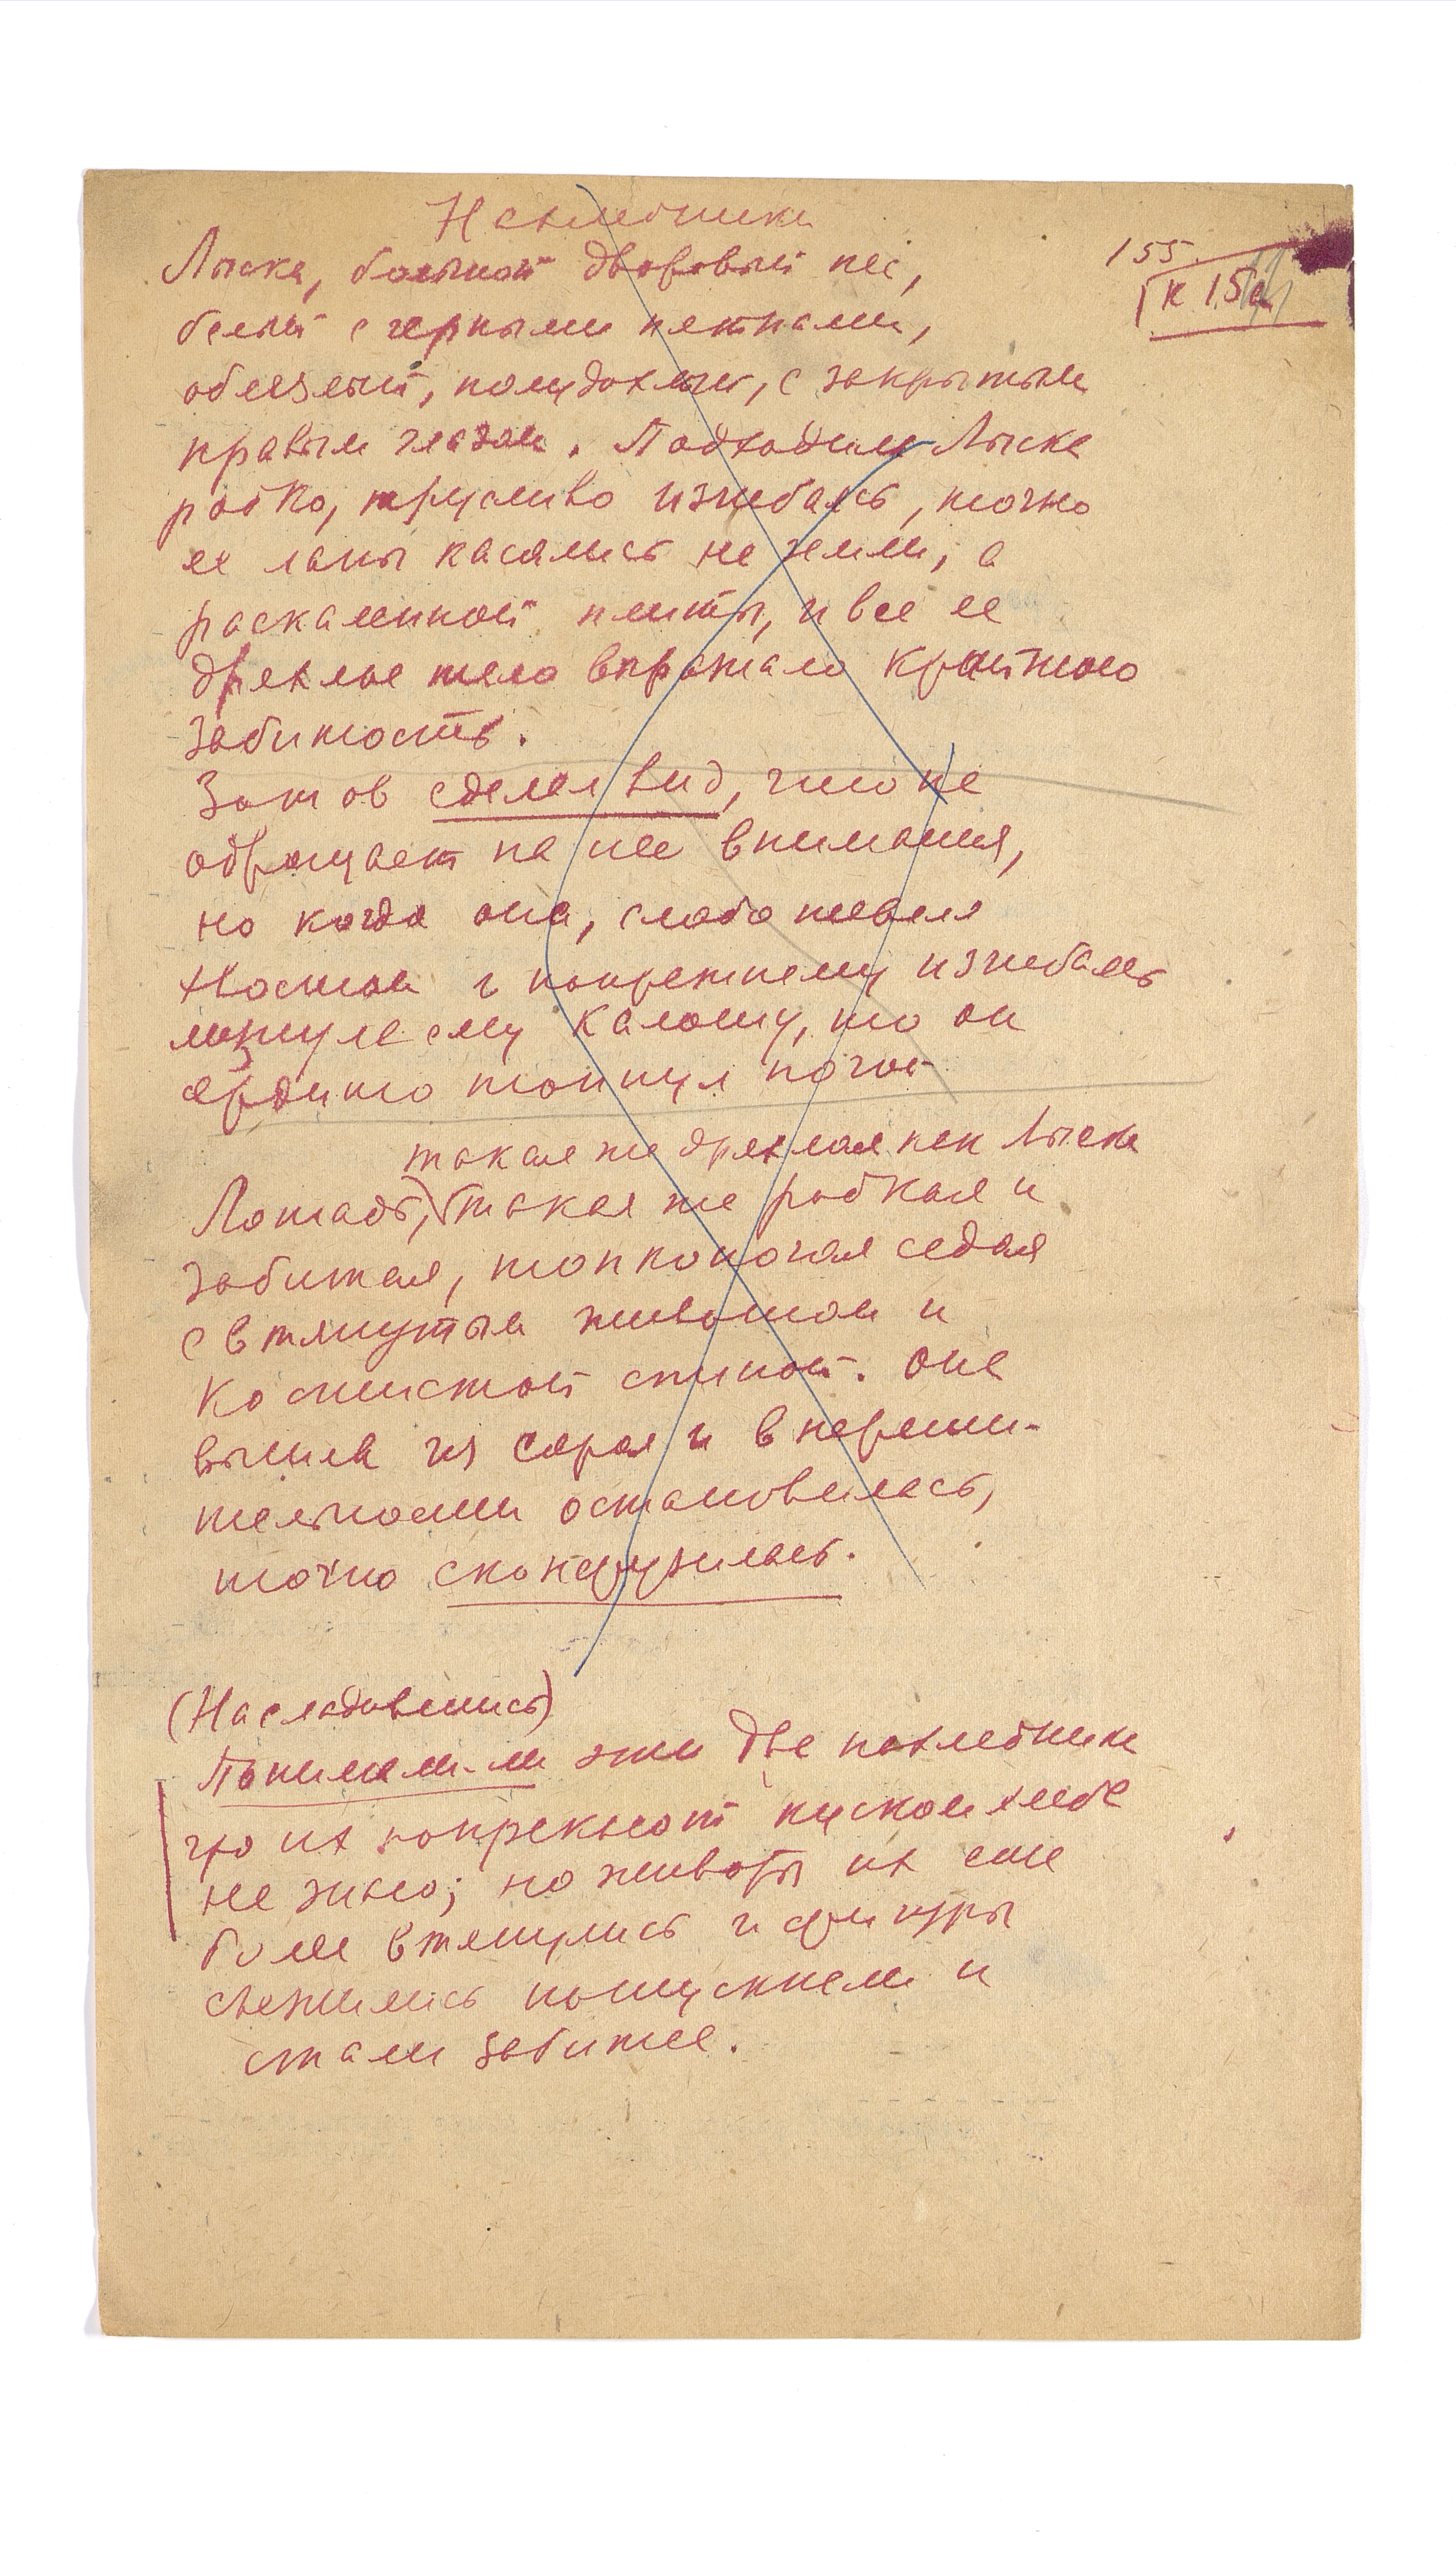 Нахлебники
155.
к 15а
Лыска, большой дворовый пес,
белый с черными пятнами,
облезлый, полудохлый, с закрытым
правым глазом. Подходила Лыска
робко, трусливо изгибаясь, точно
ее лапы касались не земли, а
раскаленной плиты, и все ее
дряхлое тело выражало крайнюю
забитость.
Зотов сделал вид, что не
обращает на нее внимания,
но когда она, слабо шевеля
хвостом и попрежнему изгибаясь
лизнула ему калошу, то он
сердито топнул ногой
такая же дряхлая как Лыска
Лошадь, такая же робкая и
забитая, тонконогая седая
с втянутым животом и
костистой спиной. Она
вышла из сарая и в нереши-
тельности остановилась,
точно сконфузилась.
(Наследовались)
Понимали-ли эти две нахлебники
что их попрекают куском хлеба
не знаю; но животы их еще
более втянулись и фигуры
съежились потускнели и
стали забитее.